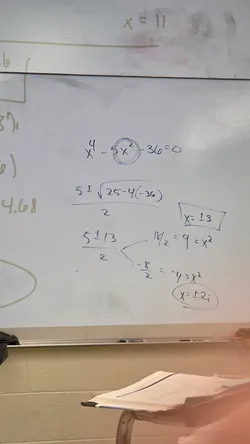 x = 11
6
%
)
4.68
x⁴ - 5x² - 36 = 0
5 ± √25-4(-36)
2
x = ±3
5 ± 13
2
18/2 = 9 = x²
-8/2 = -4 = x²
x = ±2i